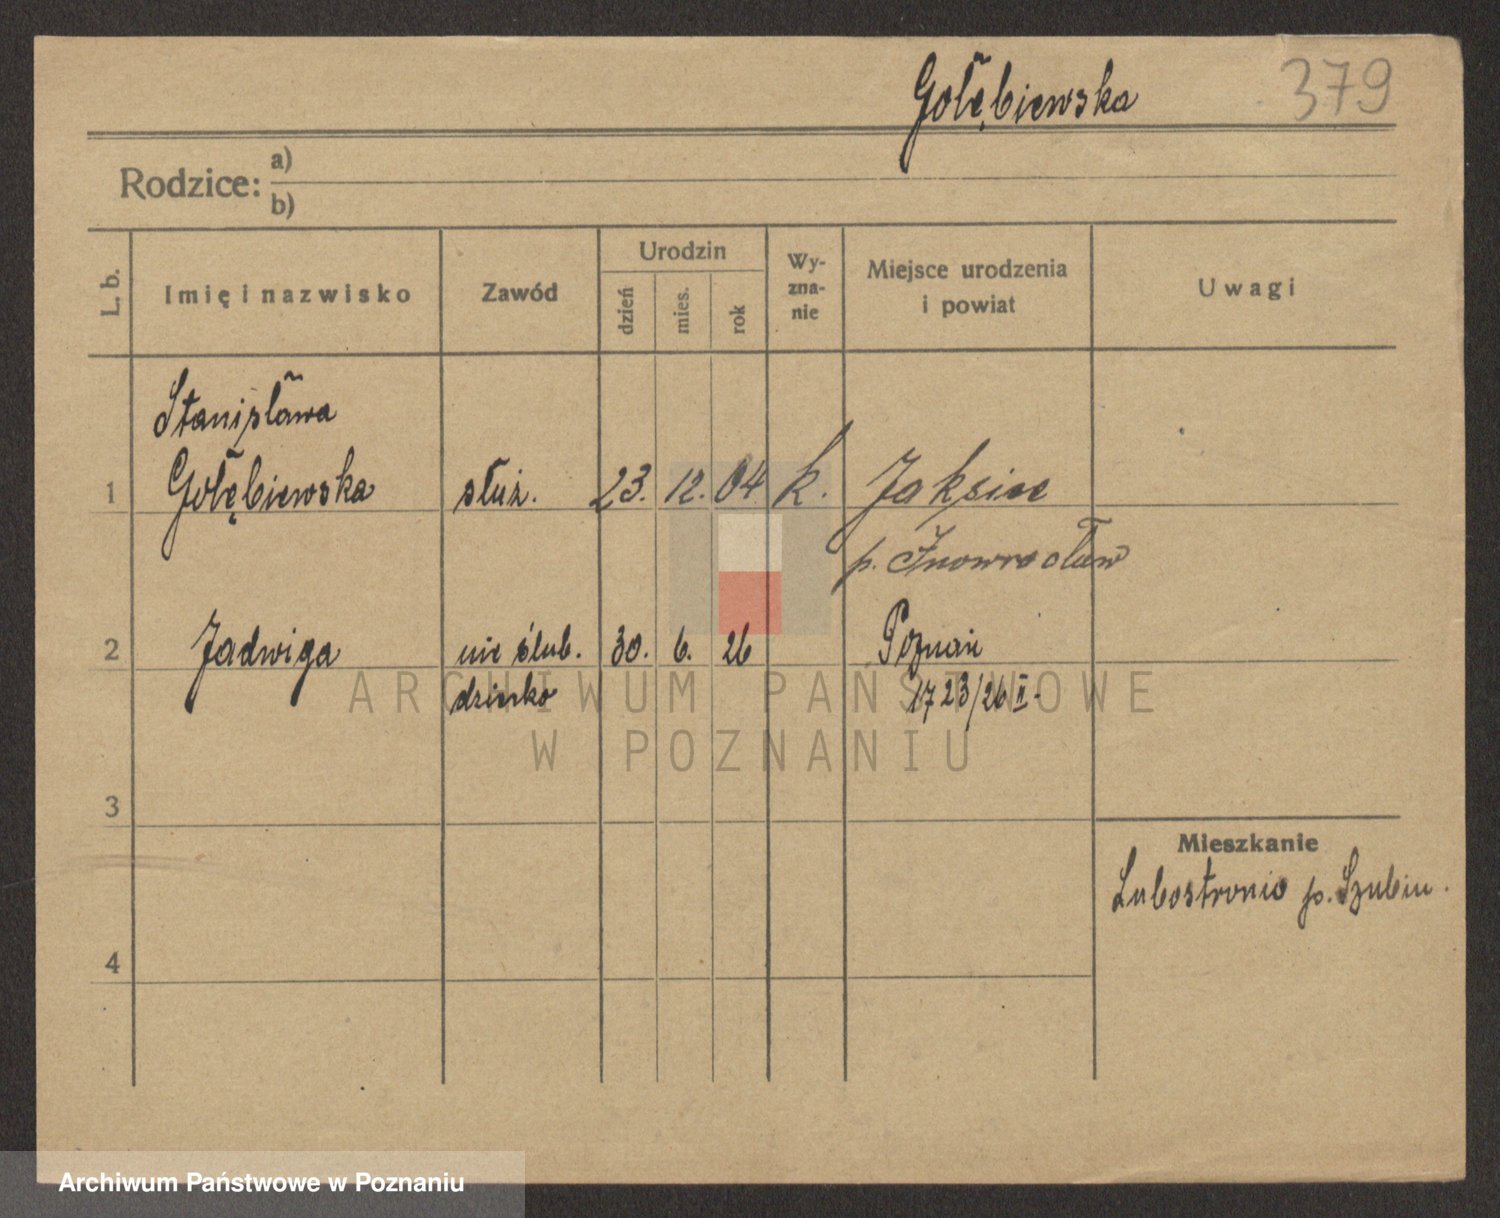 Gołębiewska 379
Rodzice: a)
b)
L. b.
Imię i nazwisko
Zawód
Urodzin
dzień
mies.
rok
Wy-
zna-
nie
Miejsce urodzenia
i powiat
Uwagi
Stanisława
1 Gołębiewska służ. 23. 12. 04 k. Jaksice
p. Inowrocław
2 Jadwiga nie ślub. 30. 6. 26 Poznań
dziecko 1723/26 II.
3
Mieszkanie
Lubostronie p. Szubin.
4
ARCHIWUM PAŃSTWOWE
W POZNANIU
Archiwum Państwowe w Poznaniu